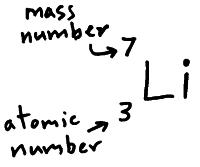 mass
number
7
Li
3
atomic
number